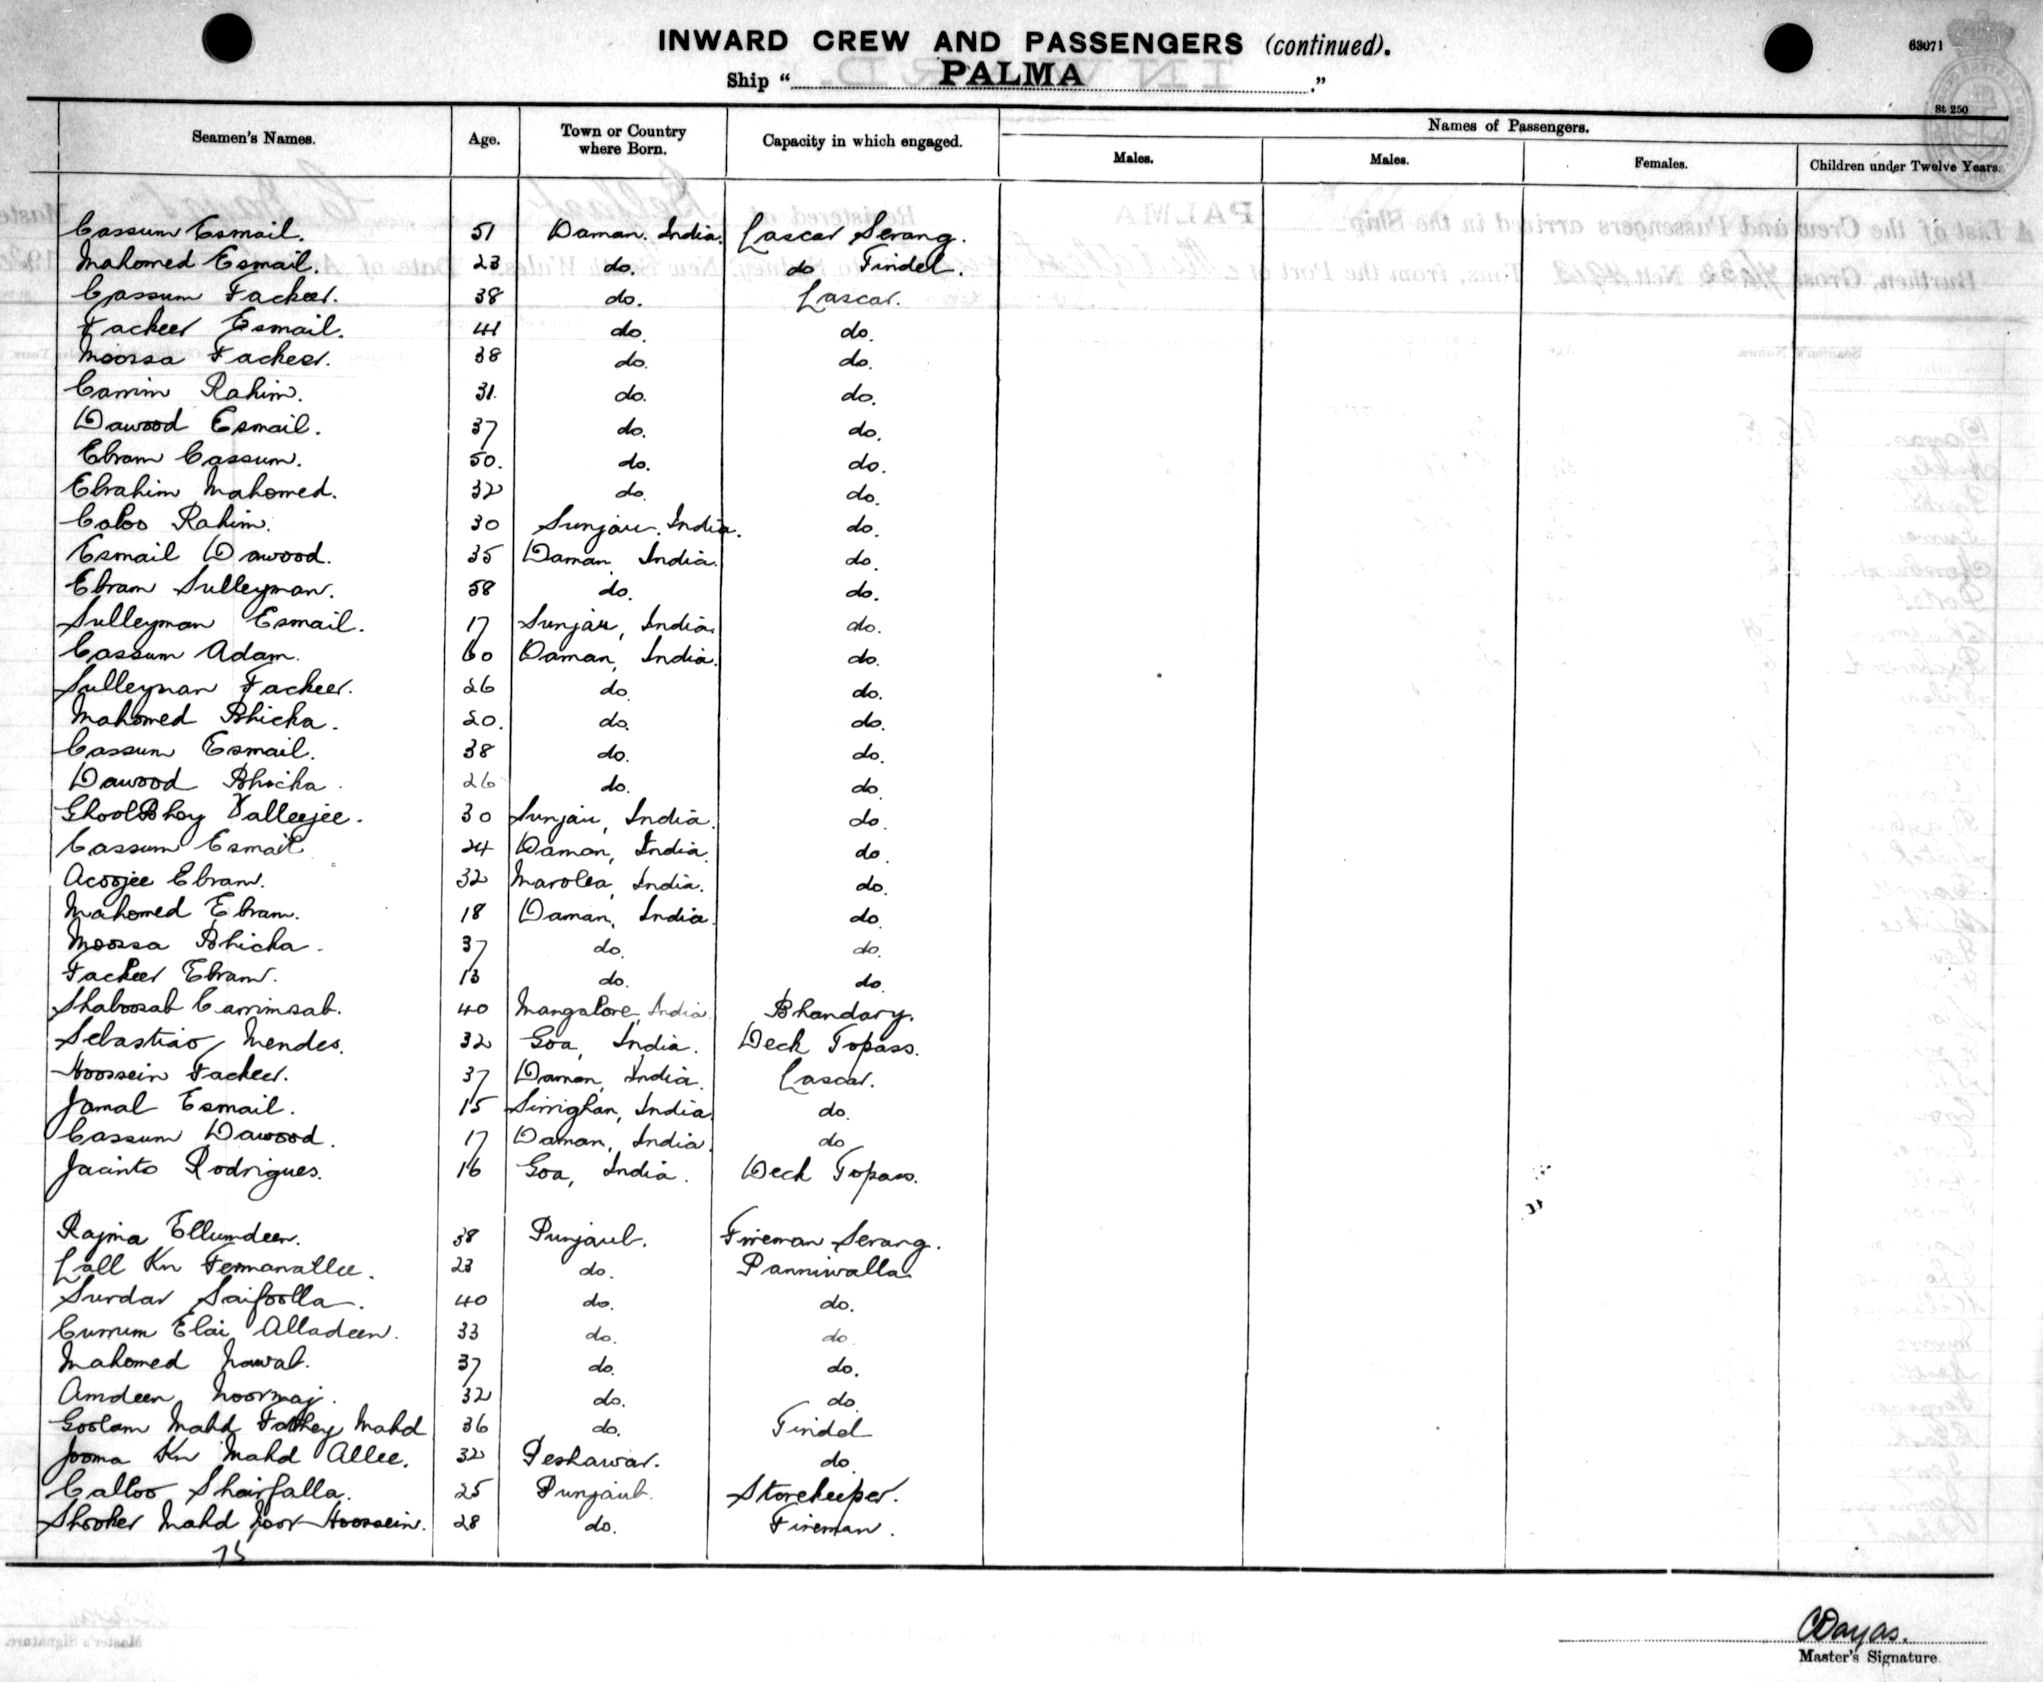 INWARD CREW AND PASSENGERS (continued).
63071
Ship " PALMA ."
St 250
Seamen's Names. Age. Town or Country where Born. Capacity in which engaged. Names of Passengers.
Males. Males. Females. Children under Twelve Years.
Cassum Esmail. 51 Daman. India. Lascar Serang.
Mahomed Esmail. 23 do. do Tindel.
Cassum Fackeer. 38 do. Lascar.
Fackeer Esmail. 41 do. do.
Moossa Fackeer. 38 do. do.
Carrim Rahim. 31. do. do.
Dawood Esmail. 37 do. do.
Ebram Cassum. 50. do. do.
Ebrahim Mahomed. 32 do. do.
Caloo Rahim. 30 Sunjau. India. do.
Esmail Dawood. 35 Daman, India. do.
Ebram Sulleyman. 58 do. do.
Sulleyman Esmail. 17 Sunjau, India. do.
Cassum Adam. 60 Daman, India. do.
Sulleyman Fackeer. 26 do. do.
Mahomed Bhicka. 20. do. do.
Cassum Esmail. 38 do. do.
Dawood Bhicka. 26 do. do.
GhoolBhoy Valleejee. 30 Sunjau, India. do.
Cassum Esmail 24 Daman, India. do.
Acoojee Ebram. 32 Marolea, India. do.
Mahomed Ebram. 18 Daman, India. do.
Moossa Bhicka. 37 do. do.
Fackeer Ebram. 13 do. do.
Shaboosab Carrimsab. 40 Mangalore, India. Bhandary.
Sebastiao Mendes. 32 Goa, India. Deck Topass.
Hoossein Fackeer. 37 Daman, India. Lascar.
Jamal Esmail. 15 Sirrighan, India. do.
Cassum Dawood. 17 Daman, India. do
Jacinto Rodrigues. 16 Goa, India. Deck Topass.
Rajma Ellumdeen. 38 Punjaub. Fireman Serang.
Lall Kn Fermanallee. 23 do. Panniwalla
Surdar Saifoolla. 40 do. do.
Currum Elai Alladeen. 33 do. do.
Mahomed Nawab. 37 do. do.
Amdeen Noormaj. 32 do. do.
Goolam Mahd Fatthey Mahd 36 do. Tindel
Jooma Kn Mahd Allee. 32 Peshawar. do.
Calloo Shairfalla. 25 Punjaub. Storekeeper.
Shooker Mahd Noor Hoossein. 28 do. Fireman.
75
CDayas.
Master's Signature